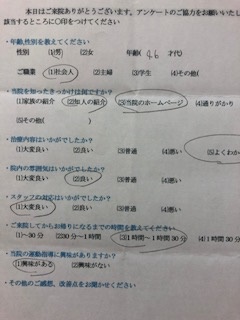 本日はご来院ありがとうございます。アンケートのご協力をお願いいたし
該当するところに〇印をつけてください
・年齢,性別を教えてください
性別 (1)男 (2)女 年齢( 46 才代)
ご職業 (1)社会人 (2)主婦 (3)学生 (4)その他(
・当院を知ったきっかけは何ですか?
(1)家族の紹介 (2)知人の紹介 (3)当院のホームページ (4)通りがかり
(5)その他( )
・治療内容はいかがでしたか?
(1)大変良い (2)良い (3)普通 (4)悪い (5)よくわか
・院内の雰囲気はいかがでしたか?
(1)大変良い (2)良い (3)普通 (4)悪い
・スタッフの対応はいかがでしたか?
(1)大変良い (2)良い (3)普通 (4)悪い
・ご来院してからお帰りになるまでの時間を教えてください
(1)~30分 (2)30分~1時間 (3)1時間~1時間30分 (4)1時間30
・当院の運動指導に興味がありますか?
(1)興味がある (2)興味がない
・その他のご感想、改善点をお聞かせください